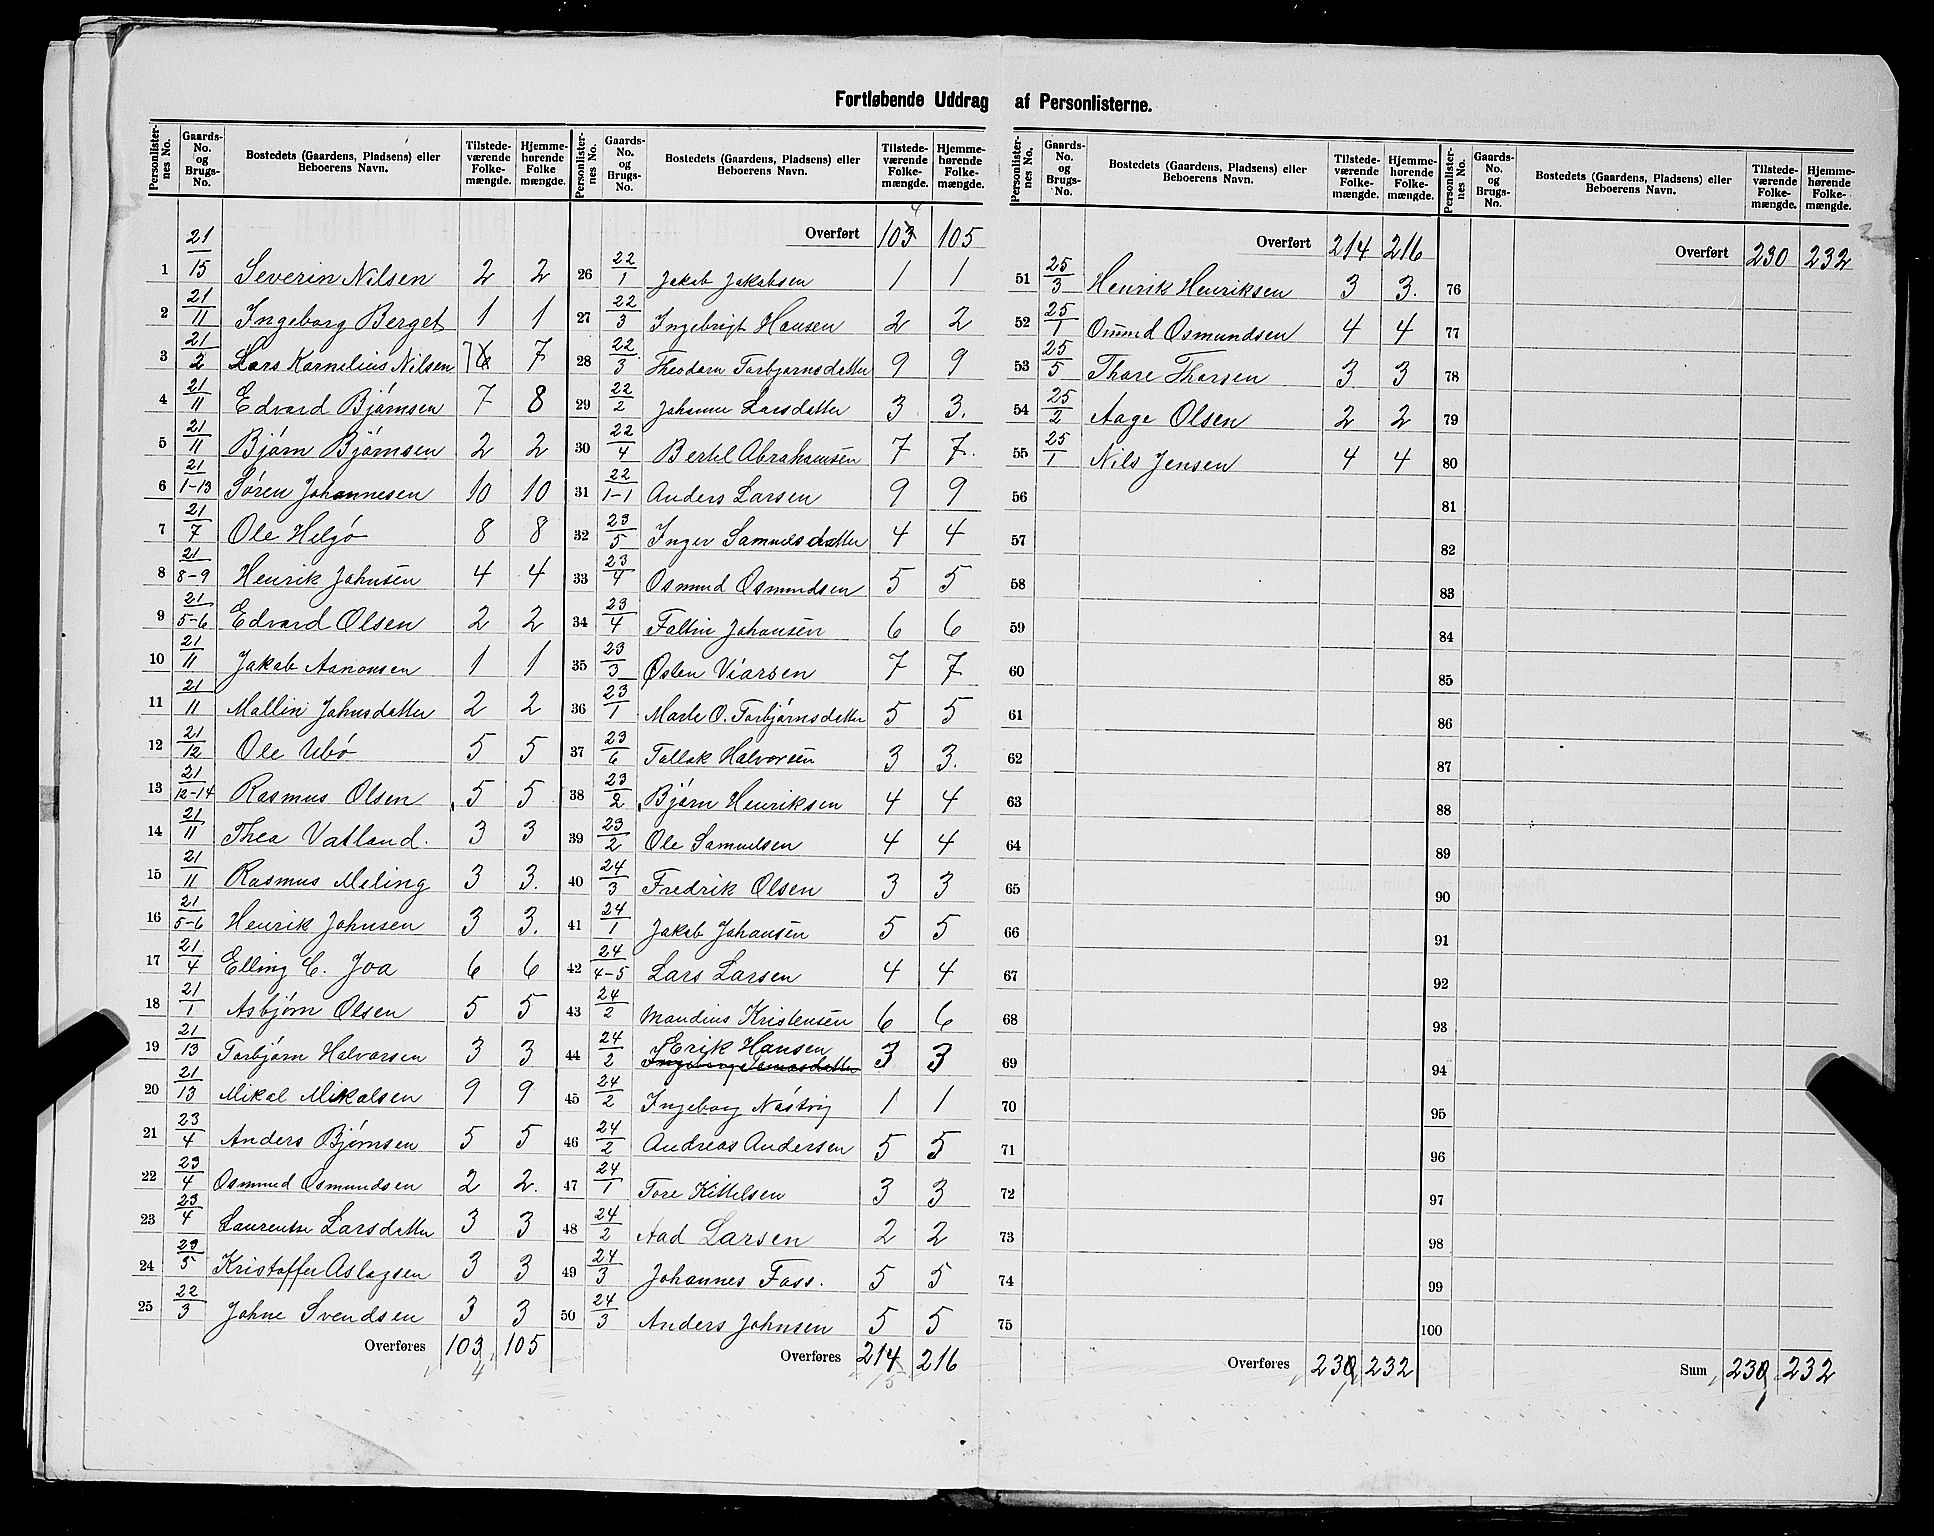 Fortløbende Uddrag af Personlisterne.
Personlisternes No. | Gaards-No. og Brugs-No. | Bostedets (Gaardens, Pladsens) eller Beboerens Navn. | Tilstedeværende Folkemængde. | Hjemmehørende Folkemængde.
1 21/15 Severin Nilsen 2 2
2 21/11 Ingeborg Berget 1 1
3 21/2 Lars Kornelius Nilsen 7 7
4 21/11 Edvard Bjørnsen 7 8
5 21/11 Bjørn Bjørnsen 2 2
6 21/1-13 Søren Johannesen 10 10
7 21/7 Ole Helgø 8 8
8 21/8-9 Henrik Johnsen 4 4
9 21/5-6 Edvard Olsen 2 2
10 21/11 Jakob Aanonsen 1 1
11 21/11 Mallin Johnsdatter 2 2
12 21/12 Ole Ubø 5 5
13 21/12-14 Rasmus Olsen 5 5
14 21/11 Thea Vatland. 3 3
15 21/11 Rasmus Meling 3 3.
16 21/5-6 Henrik Johnsen 3 3.
17 21/4 Elling C. Joa 6 6
18 21/1 Asbjørn Olsen 5 5
19 21/13 Torbjørn Halvorsen 3 3
20 21/13 Mikal Mikalsen 9 9
21 23/4 Anders Bjørnsen 5 5
22 23/4 Osmund Osmundsen 2 2.
23 23/4 Laurentse Larsdatter 3 3
24 23/5 Kristoffer Aslagsen 3 3
25 22/3 Johne Svendsen 3 3
Overføres 103 105
4
Personlisternes No. | Gaards-No. og Brugs-No. | Bostedets (Gaardens, Pladsens) eller Beboerens Navn. | Tilstedeværende Folkemængde. | Hjemmehørende Folkemængde.
4
Overført 103 105
26 22/1 Jakob Jakobsen 1 1
27 22/3 Ingebrigt Hansen 2 2
28 22/3 Theodora Torbjørnsdatter 9 9
29 22/2 Johanne Larsdatter 3 3.
30 22/4 Bertel Abrahamsen 7 7.
31 22/1-1 Anders Larsen 9 9
32 23/5 Inger Samuelsdatter 4 4
33 23/4 Osmund Osmundsen 5 5
34 23/4 Faltin Johansen 6 6
35 23/3 Østen Viarsen 7 7
36 23/1 Marte O. Torbjørnsdatter 5 5
37 23/6 Tallak Halvorsen 3 3.
38 23/2 Bjørn Henriksen 4 4
39 23/2 Ole Samuelsen 4 4
40 24/3 Fredrik Olsen 3 3
41 24/1 Jakob Johansen 5 5
42 24/4-5 Lars Larsen 4 4
43 24/2 Mandius Kristensen 6 6
44 24/2 Erik Hansen 3 3
45 24/2 Ingeborg Nåstvig 1 1
46 24/2 Andreas Andersen 5 5
47 24/1 Tore Kittelsen 3 3
48 24/2 Aad Larsen 2 2
49 24/3 Johannes Foss. 5 5
50 24/3 Anders Johnsen 5 5
Overføres 214 216
5
Personlisternes No. | Gaards-No. og Brugs-No. | Bostedets (Gaardens, Pladsens) eller Beboerens Navn. | Tilstedeværende Folkemængde. | Hjemmehørende Folkemængde.
Overført 214 216
51 25/3 Henrik Henriksen 3 3.
52 25/1 Omund Osmundsen 4 4
53 25/5 Thore Thorsen 3 3
54 25/2 Aage Olsen 2 2
55 25/1 Nils Jensen 4 4
56
57
58
59
60
61
62
63
64
65
66
67
68
69
70
71
72
73
74
75
Overføres 230 232
Personlisternes No. | Gaards-No. og Brugs-No. | Bostedets (Gaardens, Pladsens) eller Beboerens Navn. | Tilstedeværende Folkemængde. | Hjemmehørende Folkemængde.
Overført 230 232
76
77
78
79
80
81
82
83
84
85
86
87
88
89
90
91
92
93
94
95
96
97
98
99
100
Sum 230 232